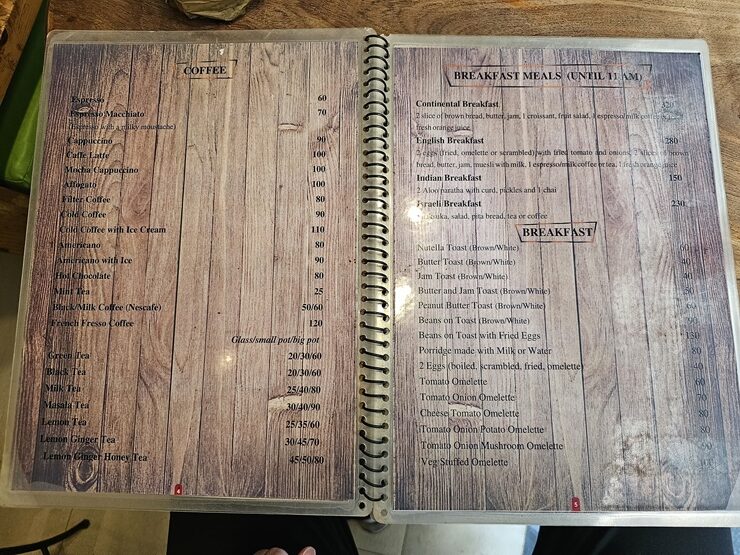 COFFEE
Espresso 60
Espresso Macchiato 70
(Espresso with a milky moustache)
Cappuccino 90
Caffe Latte 100
Mocha Cappuccino 100
Affogato 100
Filter Coffee 80
Cold Coffee 90
Cold Coffee with Ice Cream 110
Americano 80
Americano with Ice 90
Hot Chocolate 80
Mint Tea 25
Black/Milk Coffee (Nescafe) 50/60
French Fresso Coffee 120
Glass/small pot/big pot
Green Tea 20/30/60
Black Tea 20/30/60
Milk Tea 25/40/80
Masala Tea 30/40/90
Lemon Tea 25/35/60
Lemon Ginger Tea 30/45/70
Lemon Ginger Honey Tea 45/50/80
4
BREAKFAST MEALS (UNTIL 11 AM)
Continental Breakfast 320
2 slice of brown bread, butter, jam, 1 croissant, fruit salad, 1 espresso/milk coffee
fresh orange juice
English Breakfast 280
2 eggs (fried, omelette or scrambled) with fried tomato and onions, 2 slices of brown
bread, butter, jam, muesli with milk, 1 espresso/milk coffee or tea, 1 fresh orange juice
Indian Breakfast 150
2 Aloo paratha with curd, pickles and 1 chai
Israeli Breakfast 230
salad, pita bread, tea or coffee
BREAKFAST
Nutella Toast (Brown/White) 60
Butter Toast (Brown/White) 40
Jam Toast (Brown/White) 40
Butter and Jam Toast (Brown/White) 50
Peanut Butter Toast (Brown/White)
Beans on Toast (Brown/White) 90
Beans on Toast with Fried Eggs 130
Porridge made with Milk or Water 80
2 Eggs (boiled, scrambled, fried, omelette) 40
Tomato Omelette 60
Tomato Onion Omelette 70
Cheese Tomato Omelette 80
Tomato Onion Potato Omelette 80
Tomato Onion Mushroom Omelette
Veg Stuffed Omelette
5